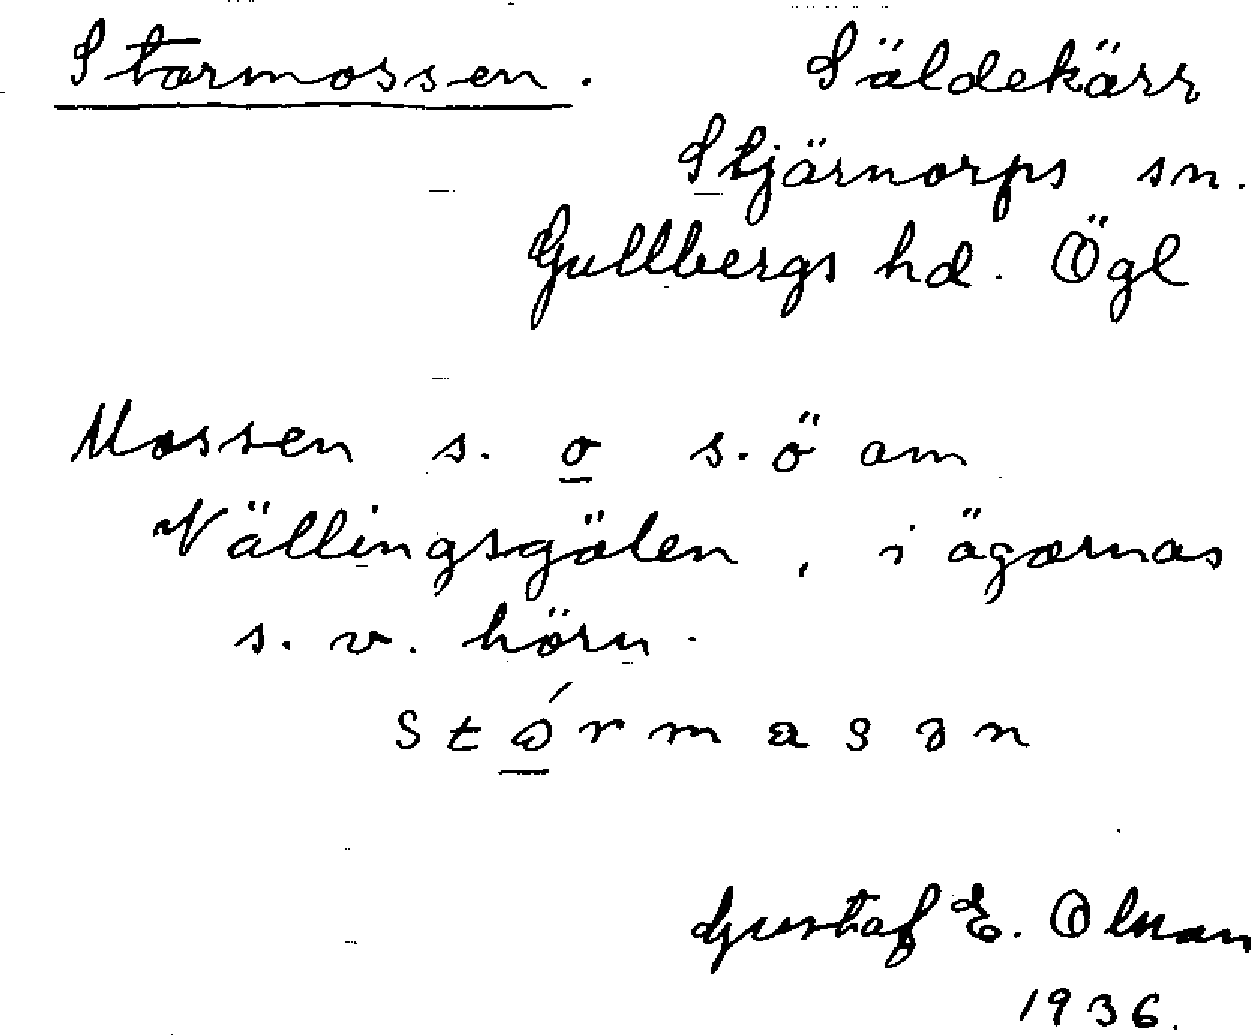 Stormossen. Säldekärr
Stjärnorps sn.
Gullbergs hd. Ögl
Mossen s. o s.ö om
Vällingsgölen, i ägornas
s. v. hörn.
Gustaf E. Olman
1936.